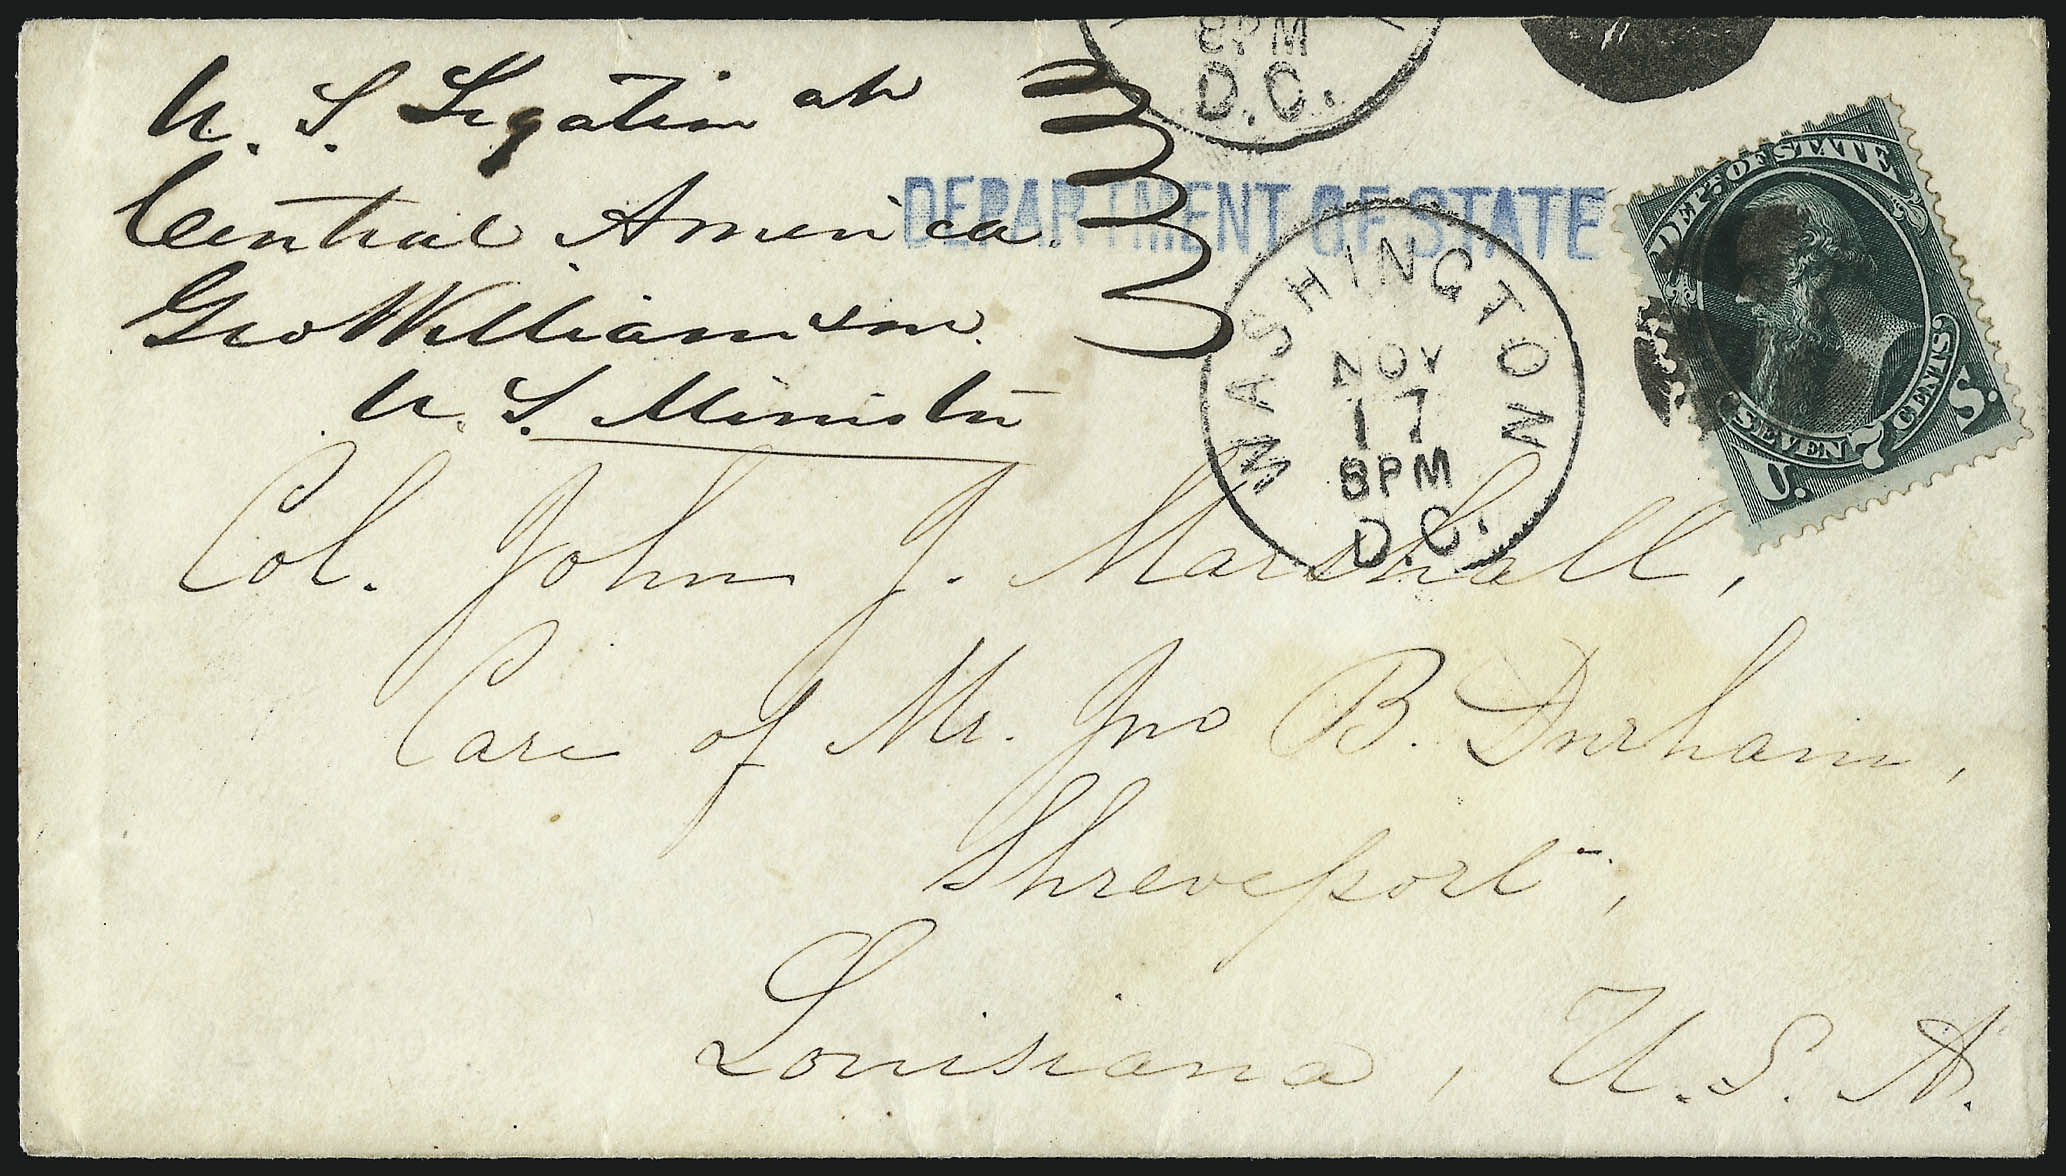 8PM
D.C.
U. S. Legation at
Central America.
Geo Williamson.
U. S. Minister
DEPARTMENT OF STATE
WASHINGTON
NOV
17
8PM
D.C.
DEPT. OF STATE
SEVEN 7 CENTS.
U. S.
Col. John J. Marshall,
Care of Mr. Jno B. Durham,
Shreveport,
Louisiana, U. S. A.